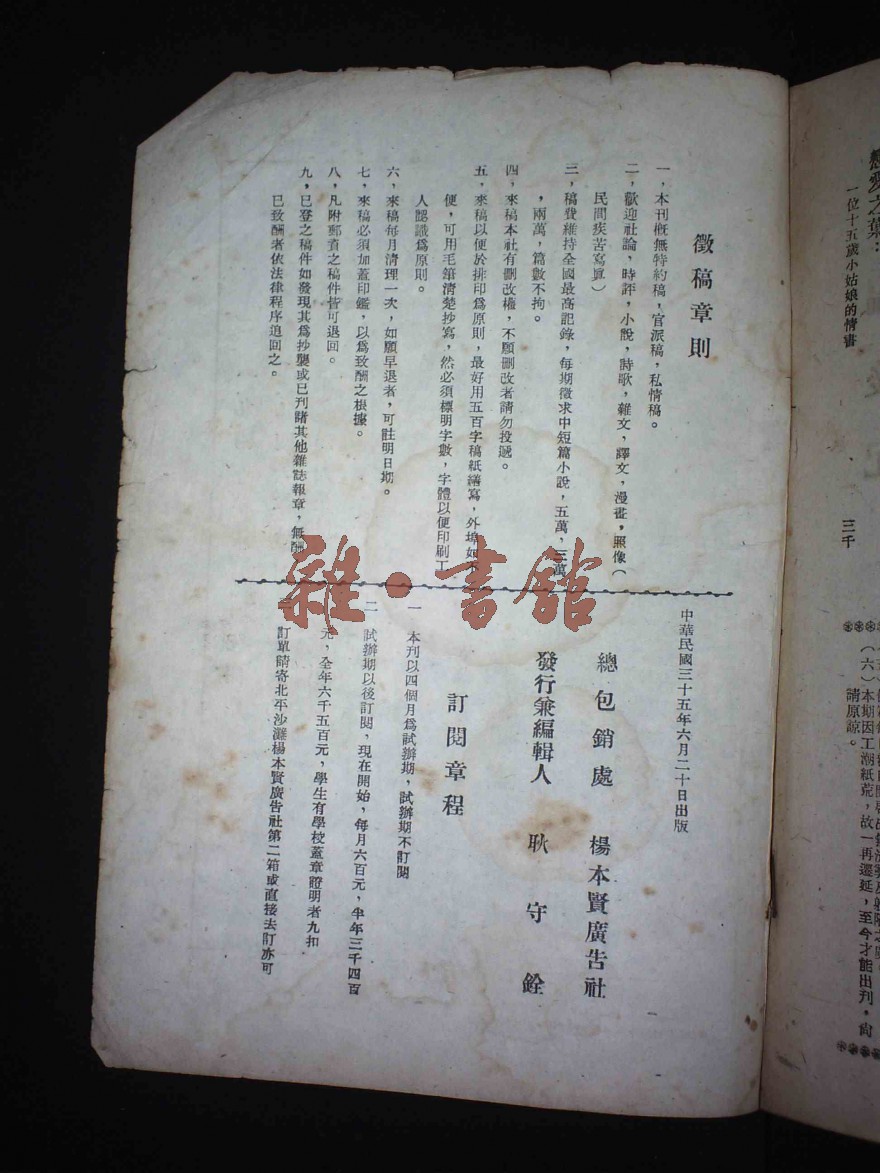 徵稿章則
一，本刊概無特約稿，官派稿，私情稿。
二，歡迎社論，時評，小說，詩歌，雜文，譯文，漫畫，照像（
民間疾苦寫眞）
三，稿費維持全國最高記錄，每期徵求中短篇小說，五萬，三萬
，兩萬，篇數不拘。
四，來稿本社有刪改權，不願刪改者請勿投遞。
五，來稿以便於排印爲原則，最好用五百字稿紙繕寫，外埠如不
便，可用毛筆清楚抄寫，然必須標明字數，字體以便印刷工
人認識爲原則。
六，來稿每月清理一次，如願早退者，可註明日期。
七，來稿必須加蓋印鑑，以爲致酬之根據。
八，凡附郵資之稿件皆可退回。
九，已登之稿件如發現其爲抄襲或已刋諸其他雜誌報章，無酬
已致酬者依法律程序追回之。
中華民國三十五年六月二十日出版
總包銷處　楊本賢廣告社
發行兼編輯人　耿守銓
訂閱章程
一　本刊以四個月爲試辦期，試辦期不訂閱
二　試辦期以後訂閱，現在開始，每月六百元，半年三千四百
元，全年六千五百元，學生有學校蓋章證明者九扣
訂單請寄北平沙灘楊本賢廣告社第二箱或直接去訂亦可
雜·書館
戀愛之葉：
一位十五歲小姑娘的情書
三千
（六）本期因工潮紙荒，故一再遷延，至今才能出刋，尙
請原諒。